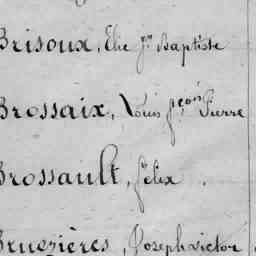 Brisoux, Elie Jn Baptiste
Brossaix, Louis fçois Pierre
Brossault, félix.
Bruezières, Joseph victor